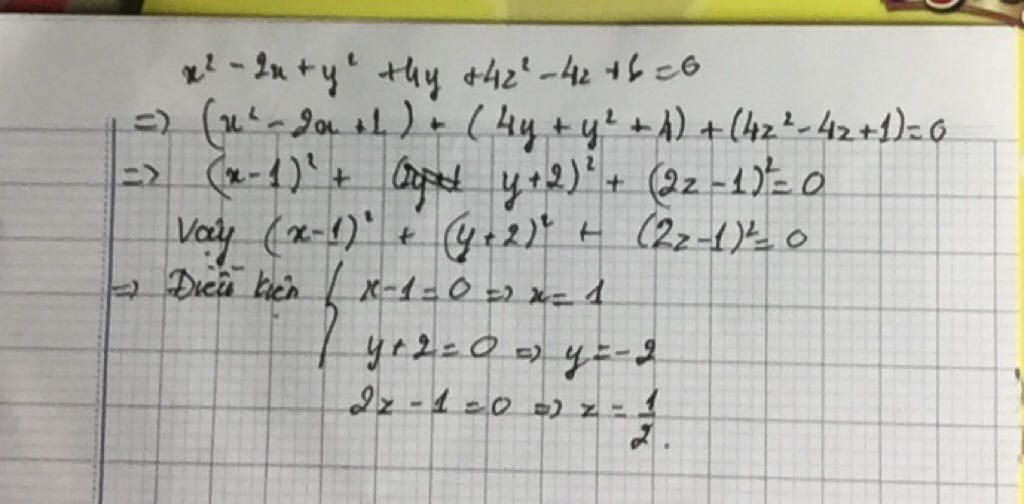 x² - 2x + y² + 4y + 4z² - 4z + 6 = 0
=> (x² - 2x + 1) + (4y + y² + 4) + (4z² - 4z + 1) = 0
=> (x - 1)² + (y + 2)² + (2z - 1)² = 0
Vậy (x - 1)² + (y + 2)² + (2z - 1)² = 0
=> Điều kiện { x - 1 = 0 => x = 1
y + 2 = 0 => y = -2
2z - 1 = 0 => z = 1/2.